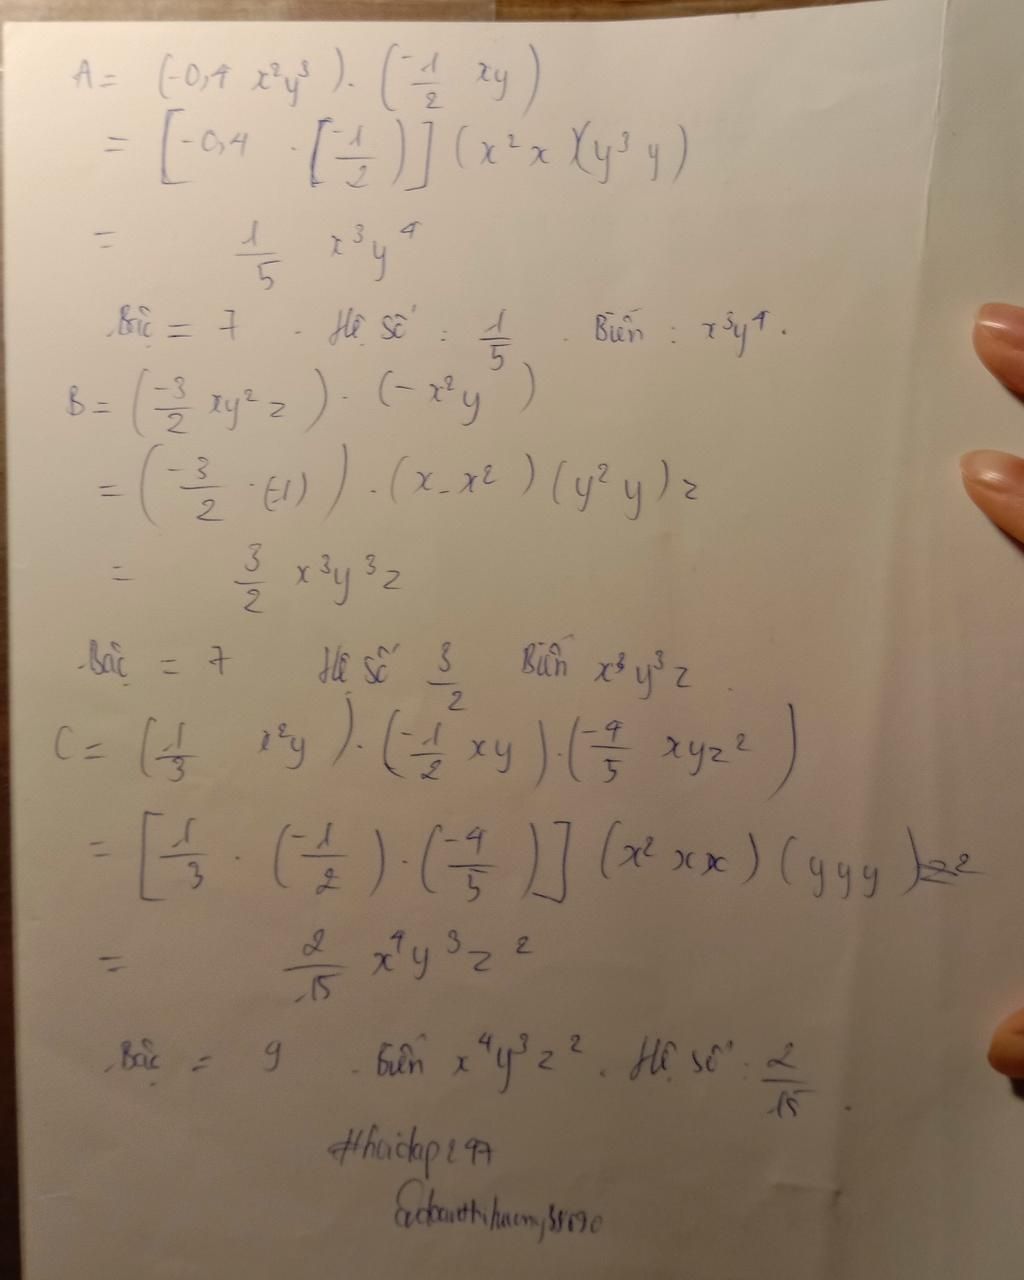 A = (-0,4 x²y³) . (-1/2 xy)
= [-0,4 . [-1/2)] (x²x)(y³y)
= 1/5 x³y⁴
Bậc = 7 . Hệ số : 1/5 . Biến : x³y⁴.
B = (-3/2 xy²z) . (-x²y)
= (-3/2 . (-1)) . (x-x²) (y²y) z
= 3/2 x³y³z
Bậc = 7 Hệ số 3/2 Biến x³y³z.
C = (1/3 x²y) . (-1/2 xy) . (-4/5 xyz²)
= [1/3 . (-1/2) . (-4/5)] (x² x x) (y y y) z²
= 2/15 x⁴y³z²
Bậc = 9 . Biến x⁴y³z² . Hệ số : 2/15.
#hoidap247